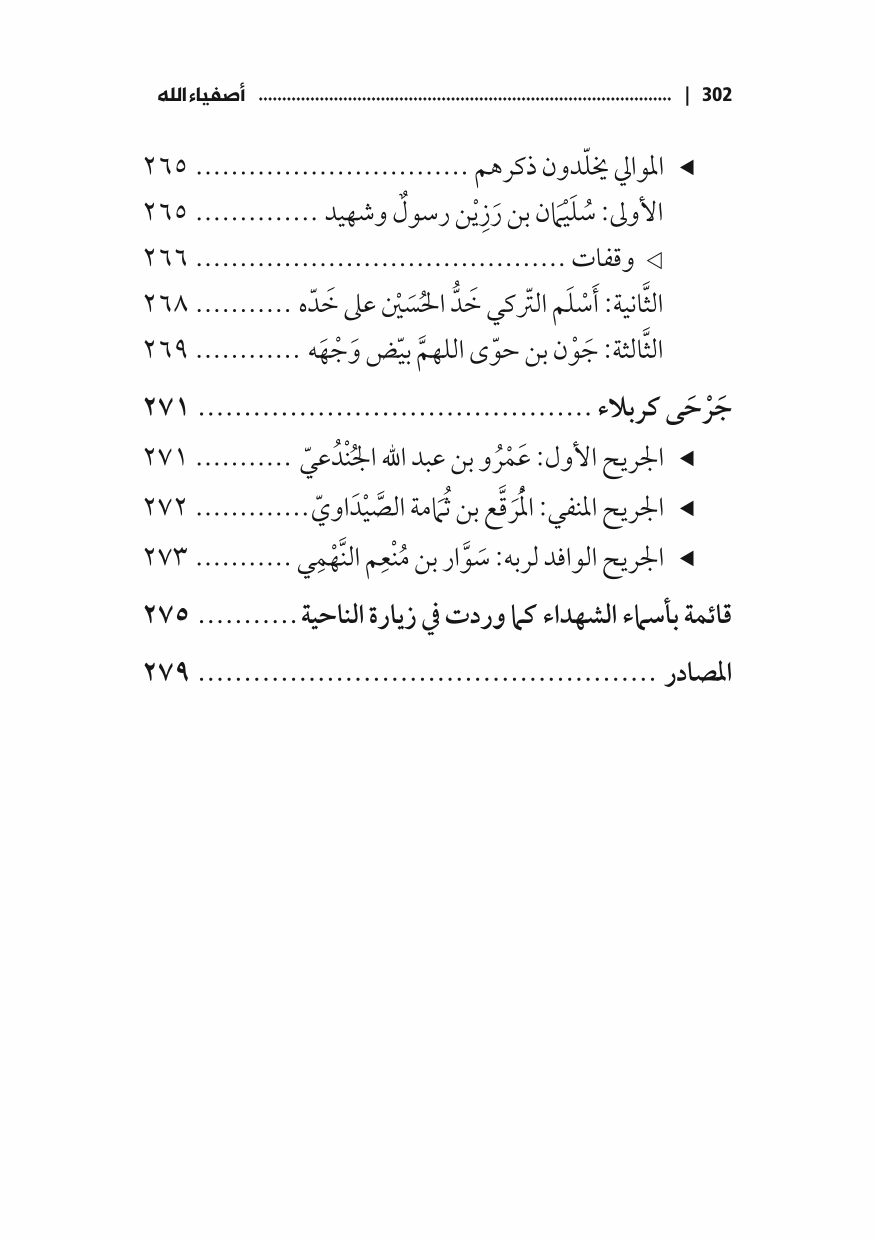 302 | ........................................................................................ أصفياء الله
◀ الموالي يخلّدون ذكرهم .............................. ٢٦٥
الأولى: سُلَيْمَان بن رَزِيْن رسولٌ وشهيد .............. ٢٦٥
◁ وقفات ......................................... ٢٦٦
الثَّانية: أَسْلَم التّركي خَدُّ الحُسَيْن على خَدّه ........... ٢٦٨
الثَّالثة: جَوْن بن حوّى اللهمَّ بيّض وَجْهَه ............ ٢٦٩
جَرْحَى كربلاء ........................................... ٢٧١
◀ الجريح الأول: عَمْرُو بن عبد الله الجُنْدُعيّ ........... ٢٧١
◀ الجريح المنفي: المُرَقَّع بن ثُمَامة الصَّيْدَاويّ ............. ٢٧٢
◀ الجريح الوافد لربه: سَوَّار بن مُنْعِم النَّهْمِي ........... ٢٧٣
قائمة بأسماء الشهداء كما وردت في زيارة الناحية ........... ٢٧٥
المصادر .................................................. ٢٧٩